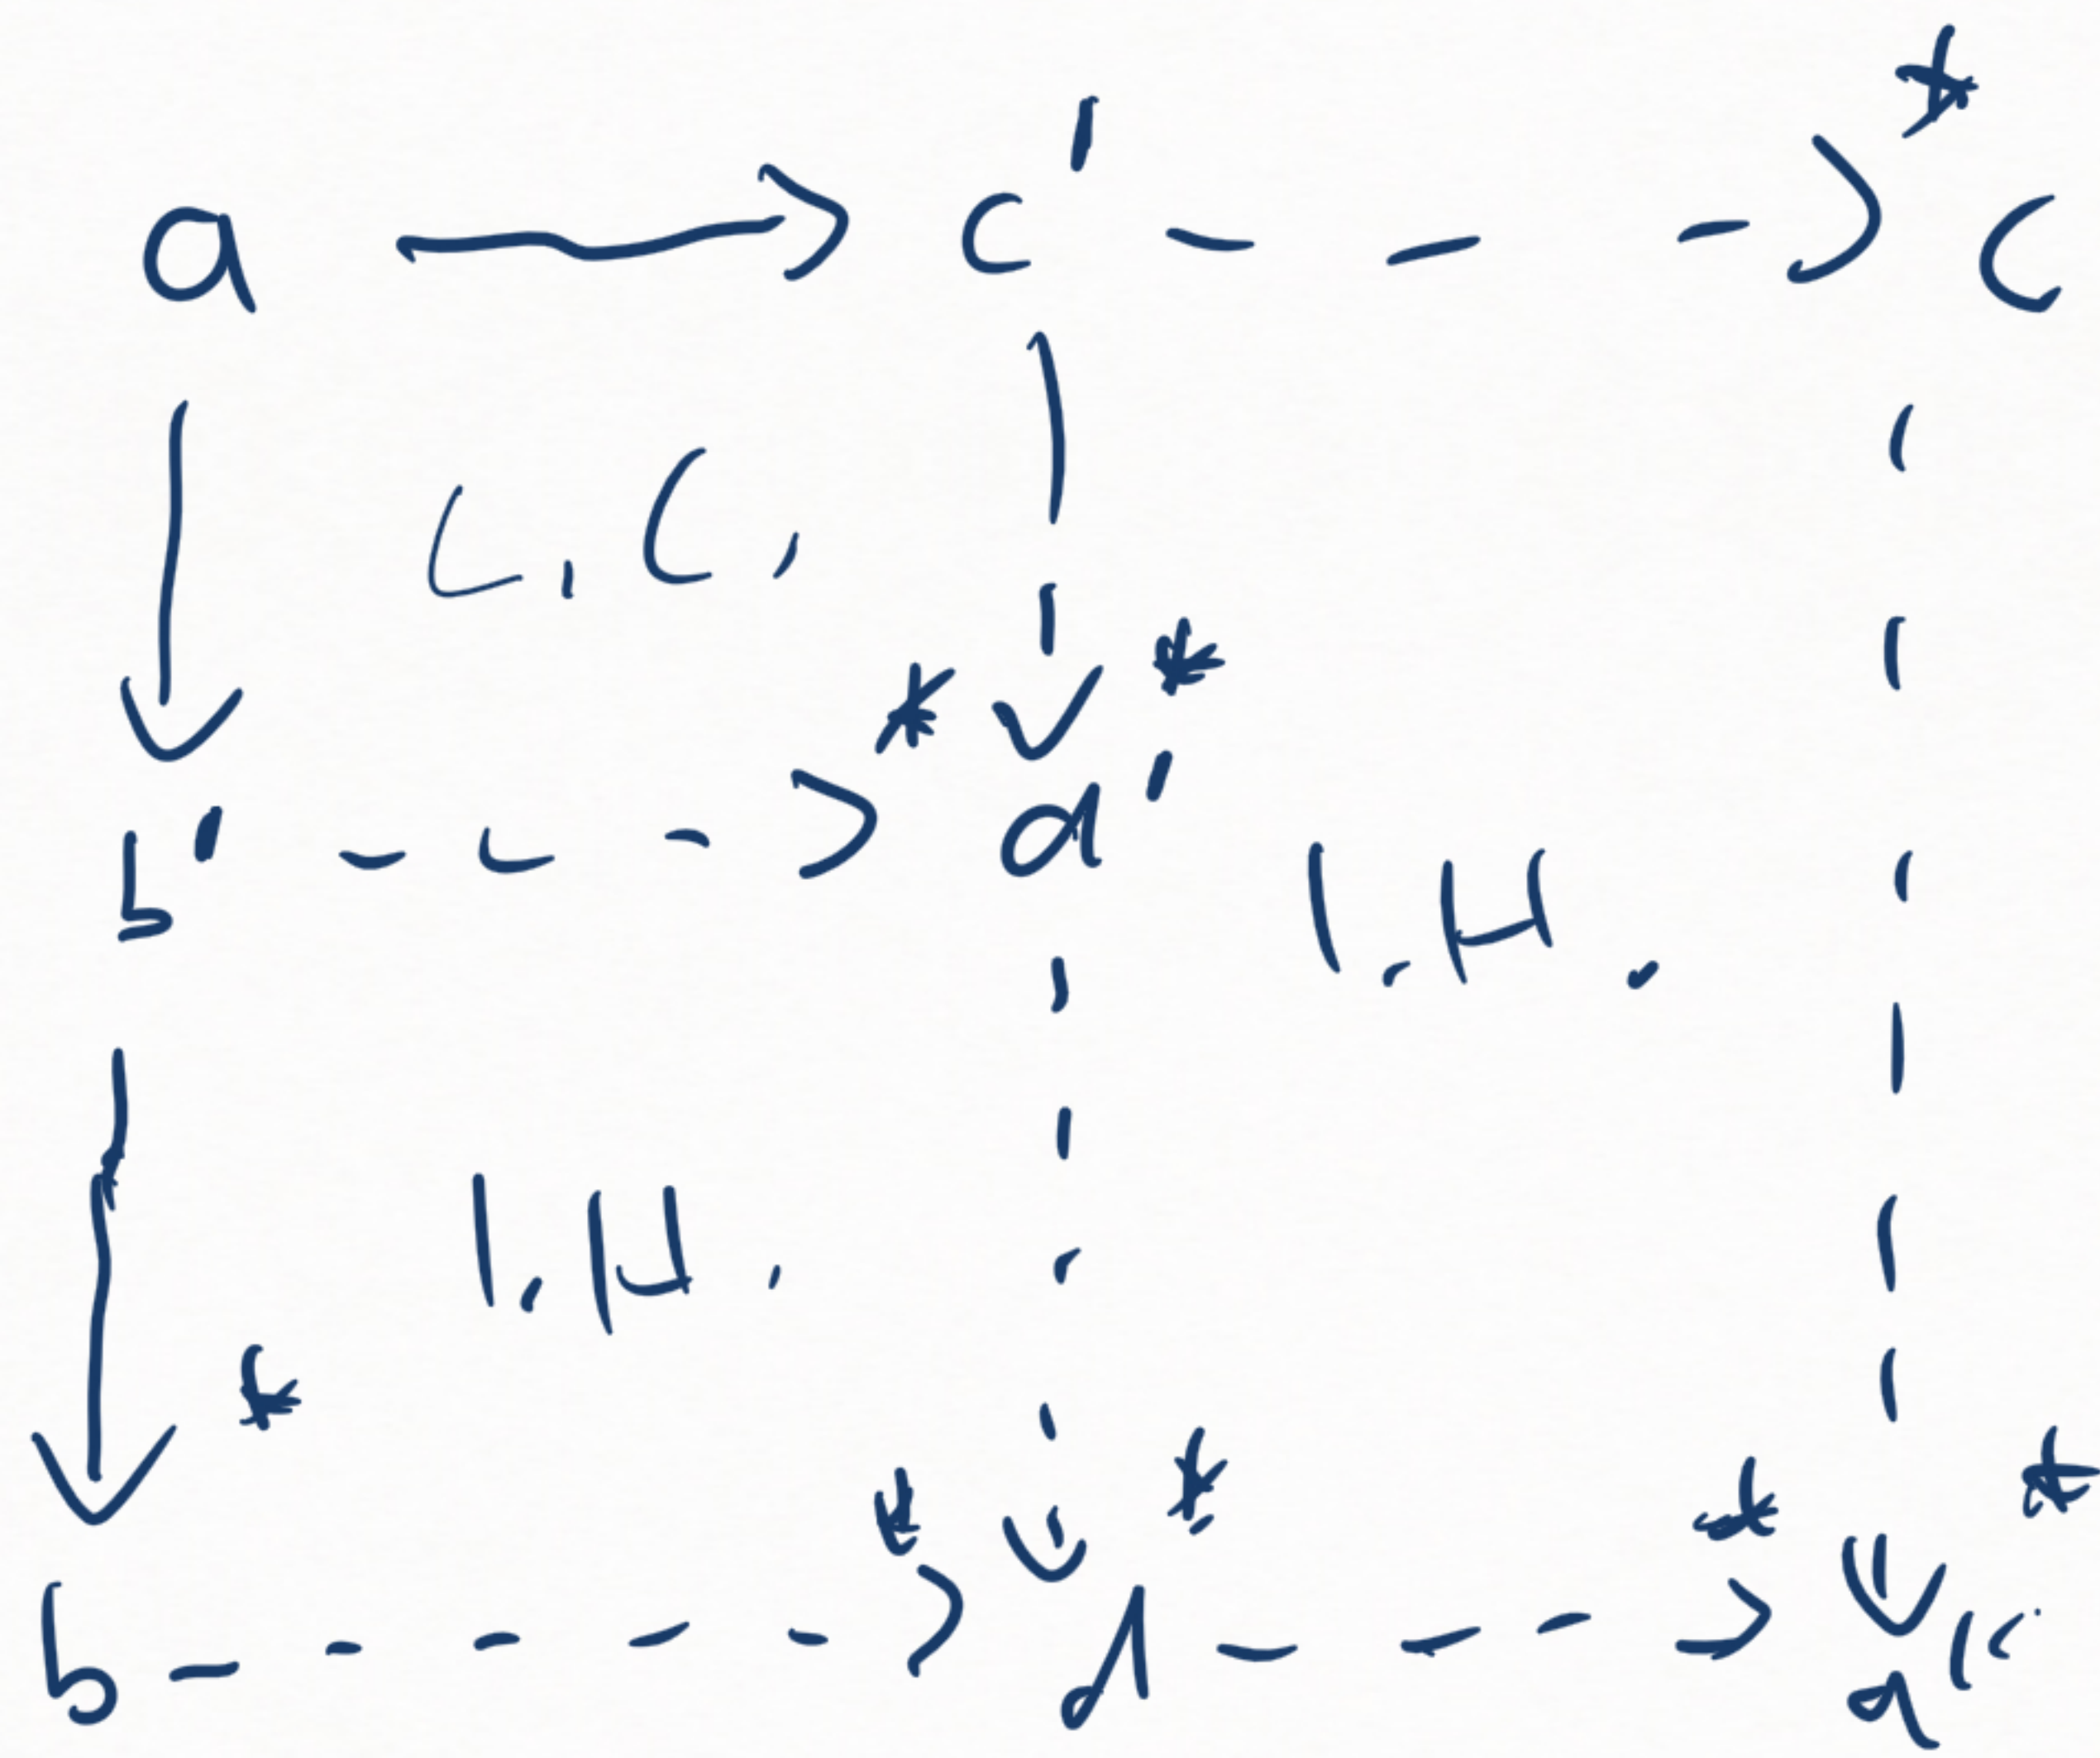 a → c' --→* c
L.C.
b' --→* d' *
I.H.
I.H.
*
b --→* d * --→* d'' *